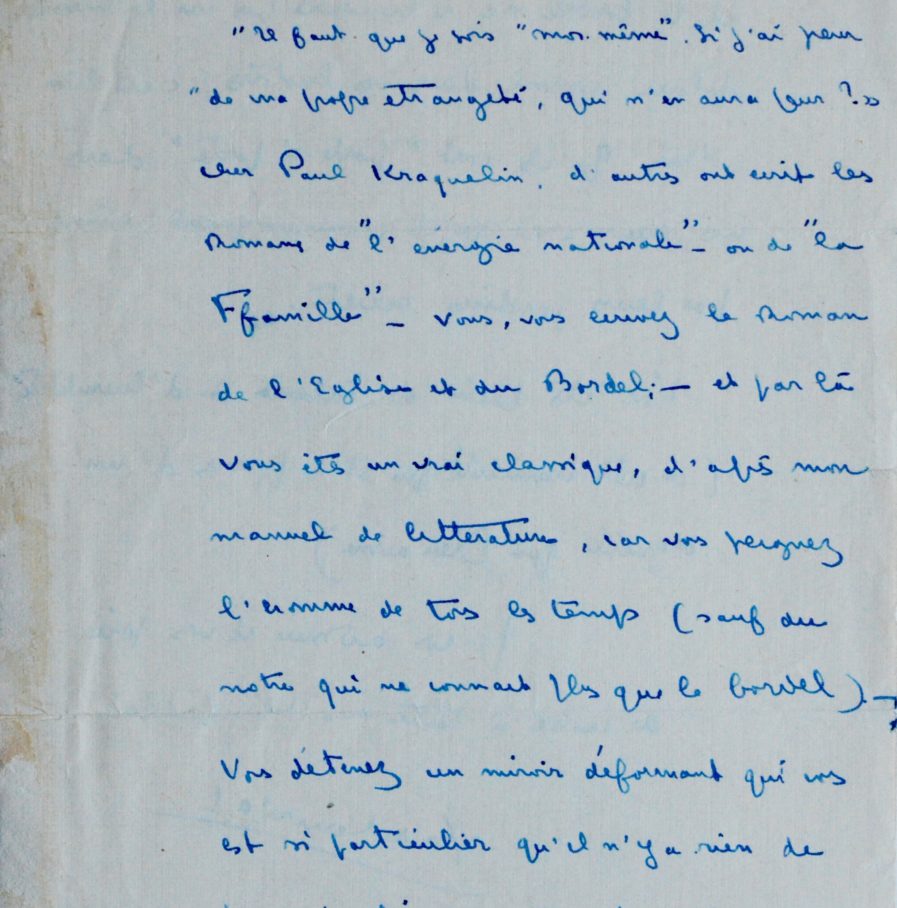 "Il faut que je sois "moi-même". Si j'ai peur
"de ma propre etrangeté, qui n'en aura peur ?»
cher Paul Kraquelin, d'autres ont ecrit les
Romans de "l'energie nationale" – ou de "la
Ffamille" – vous, vous ecrivez le Roman
de l'Eglise et du Bordel; – et par là
vous êtes un vrai classique, d'après mon
manuel de litterature, car vous peignez
l'homme de tous les temps (sauf du
notre qui ne connait plus que le bordel). –
Vous détenez un miroir déformant qui vous
est si particulier qu'il n'y a rien de